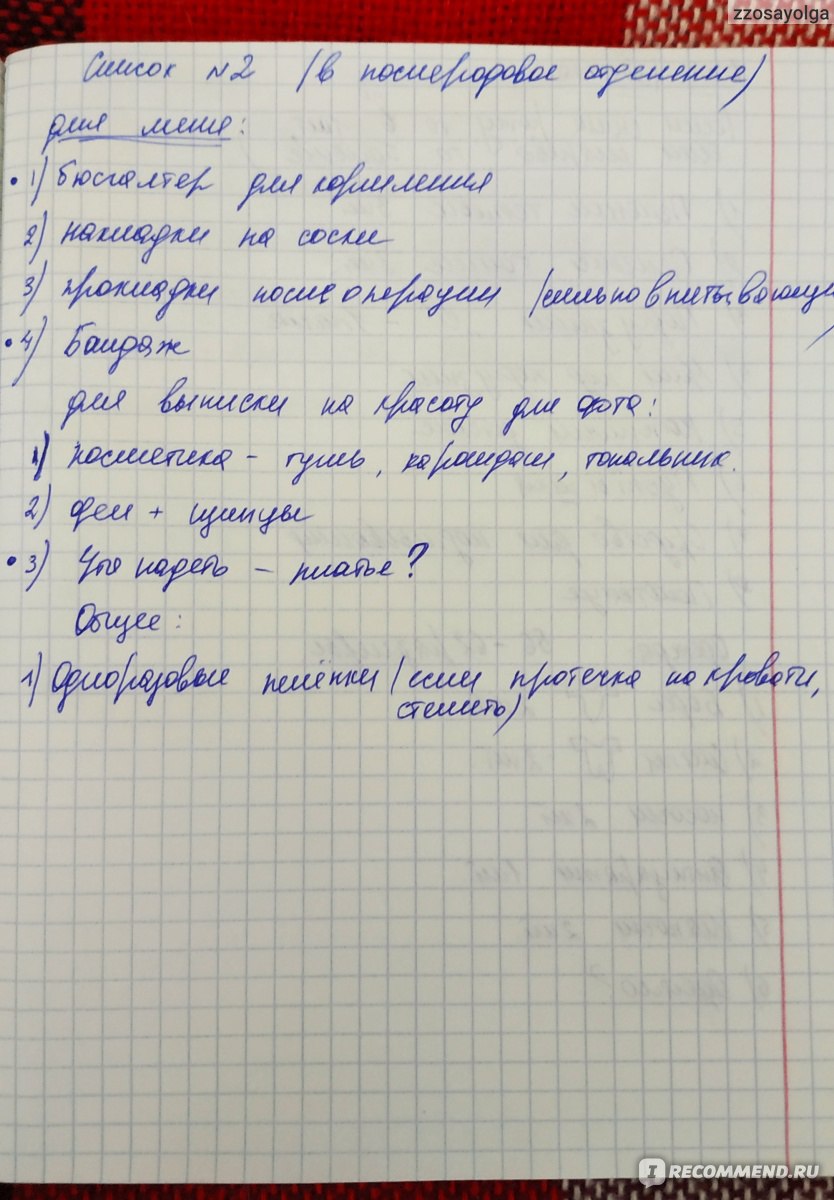 zzosayolga
Список №2 (в послеродовое отделение)
для меня:
• 1) бюсгалтер для кормления
2) накладки на соски
3) прокладки после операции (сильно впитывающи
• 4) Бандаж
для выписки на красоту для фото:
1) косметика - тушь, карандаш, тональник.
2) фен + щипцы
• 3) Что надеть - платье?
Общее:
1) Одноразовые пелёнки (если протечка на кровати,
стелить)
I RECOMMEND.RU